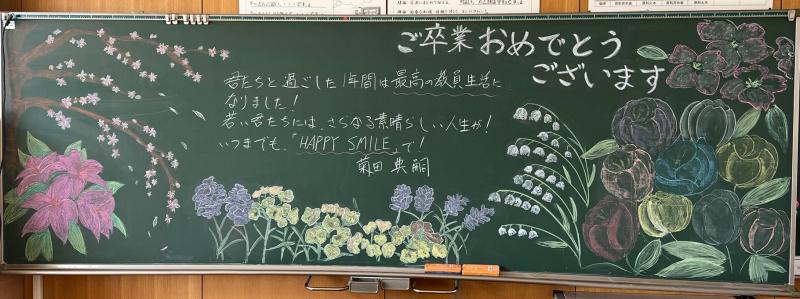 ご卒業おめでとう
ございます
君たちと過ごした1年間は最高の教員生活に
なりました!
若い君たちには、さらなる素晴らしい人生が!
いつまでも、「HAPPY SMILE」で!
菊田 典嗣